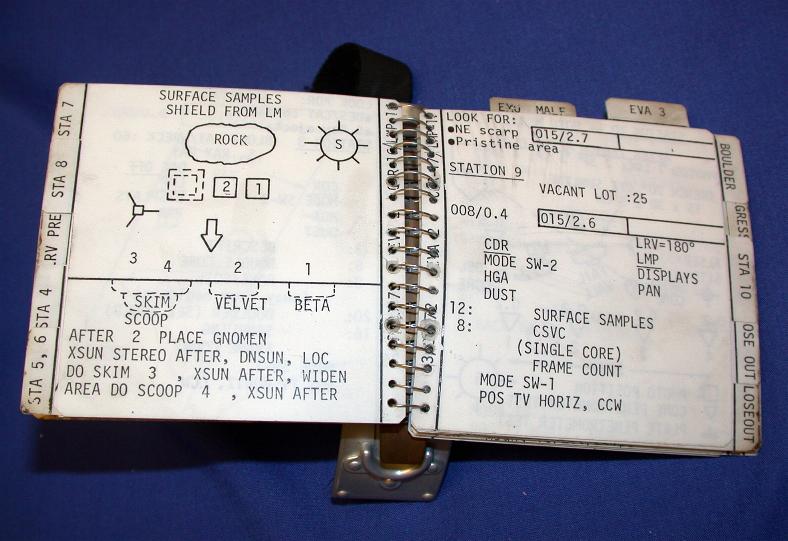 STA 7
STA 8
STA 4
STA 5, 6
SURFACE SAMPLES
SHIELD FROM LM
ROCK
S
2 1
3 4 2 1
SKIM VELVET BETA
SCOOP
AFTER 2 PLACE GNOMEN
XSUN STEREO AFTER, DNSUN, LOC
DO SKIM 3 , XSUN AFTER, WIDEN
AREA DO SCOOP 4 , XSUN AFTER
EVA 3
LOOK FOR:
•NE scarp 015/2.7
•Pristine area
STATION 9
VACANT LOT :25
008/0.4 015/2.6
CDR LRV=180°
MODE SW-2 LMP
HGA DISPLAYS
DUST PAN
12: SURFACE SAMPLES
8: CSVC
(SINGLE CORE)
FRAME COUNT
MODE SW-1
POS TV HORIZ, CCW
BOULDER
STA 10
CLOSEOUT